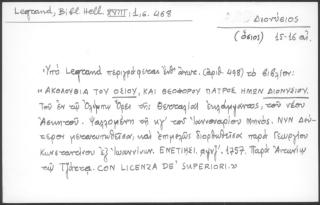 Legrand, Bibl. Hell. XVIII : 1, σ. 468
ΔΙΟΝΥΣΙΟΣ
(ὅσιος) 15-16 αἰ.
Ὑπὸ Legrand περιγράφεται ὑπ' (ἀριθ. 498) τὸ βιβλίον:
"ΑΚΟΛΟΥΘΙΑ ΤΟΥ ΟΣΙΟΥ, ΚΑΙ ΘΕΟΦΟΡΟΥ ΠΑΤΡΟΣ ΗΜΩΝ ΔΙΟΝΥΣΙΟΥ.
Τοῦ ἐν τῷ Ὀλύμπῳ Ὄρει τῆς Θετταλίας ἐκλάμψαντος, τοῦ νέου
Ἀσκητοῦ. Ψαλλομένη τῇ κγ' τοῦ Ἰαννουαρίου Μηνός. ΝΥΝ Δεύ-
τερον μετατυπωθεῖσα, καὶ ἐπιμελῶς διορθωθεῖσα παρὰ Γεωργίου
Κωνσταντίνου ἐξ Ἰωαννίνων. ΕΝΕΤΙΗΣΙ. ͵αψνζ'. 1757. Παρὰ Ἀντωνίῳ
τῷ Τζάττα. CON LICENZA DE' SUPERIORI."